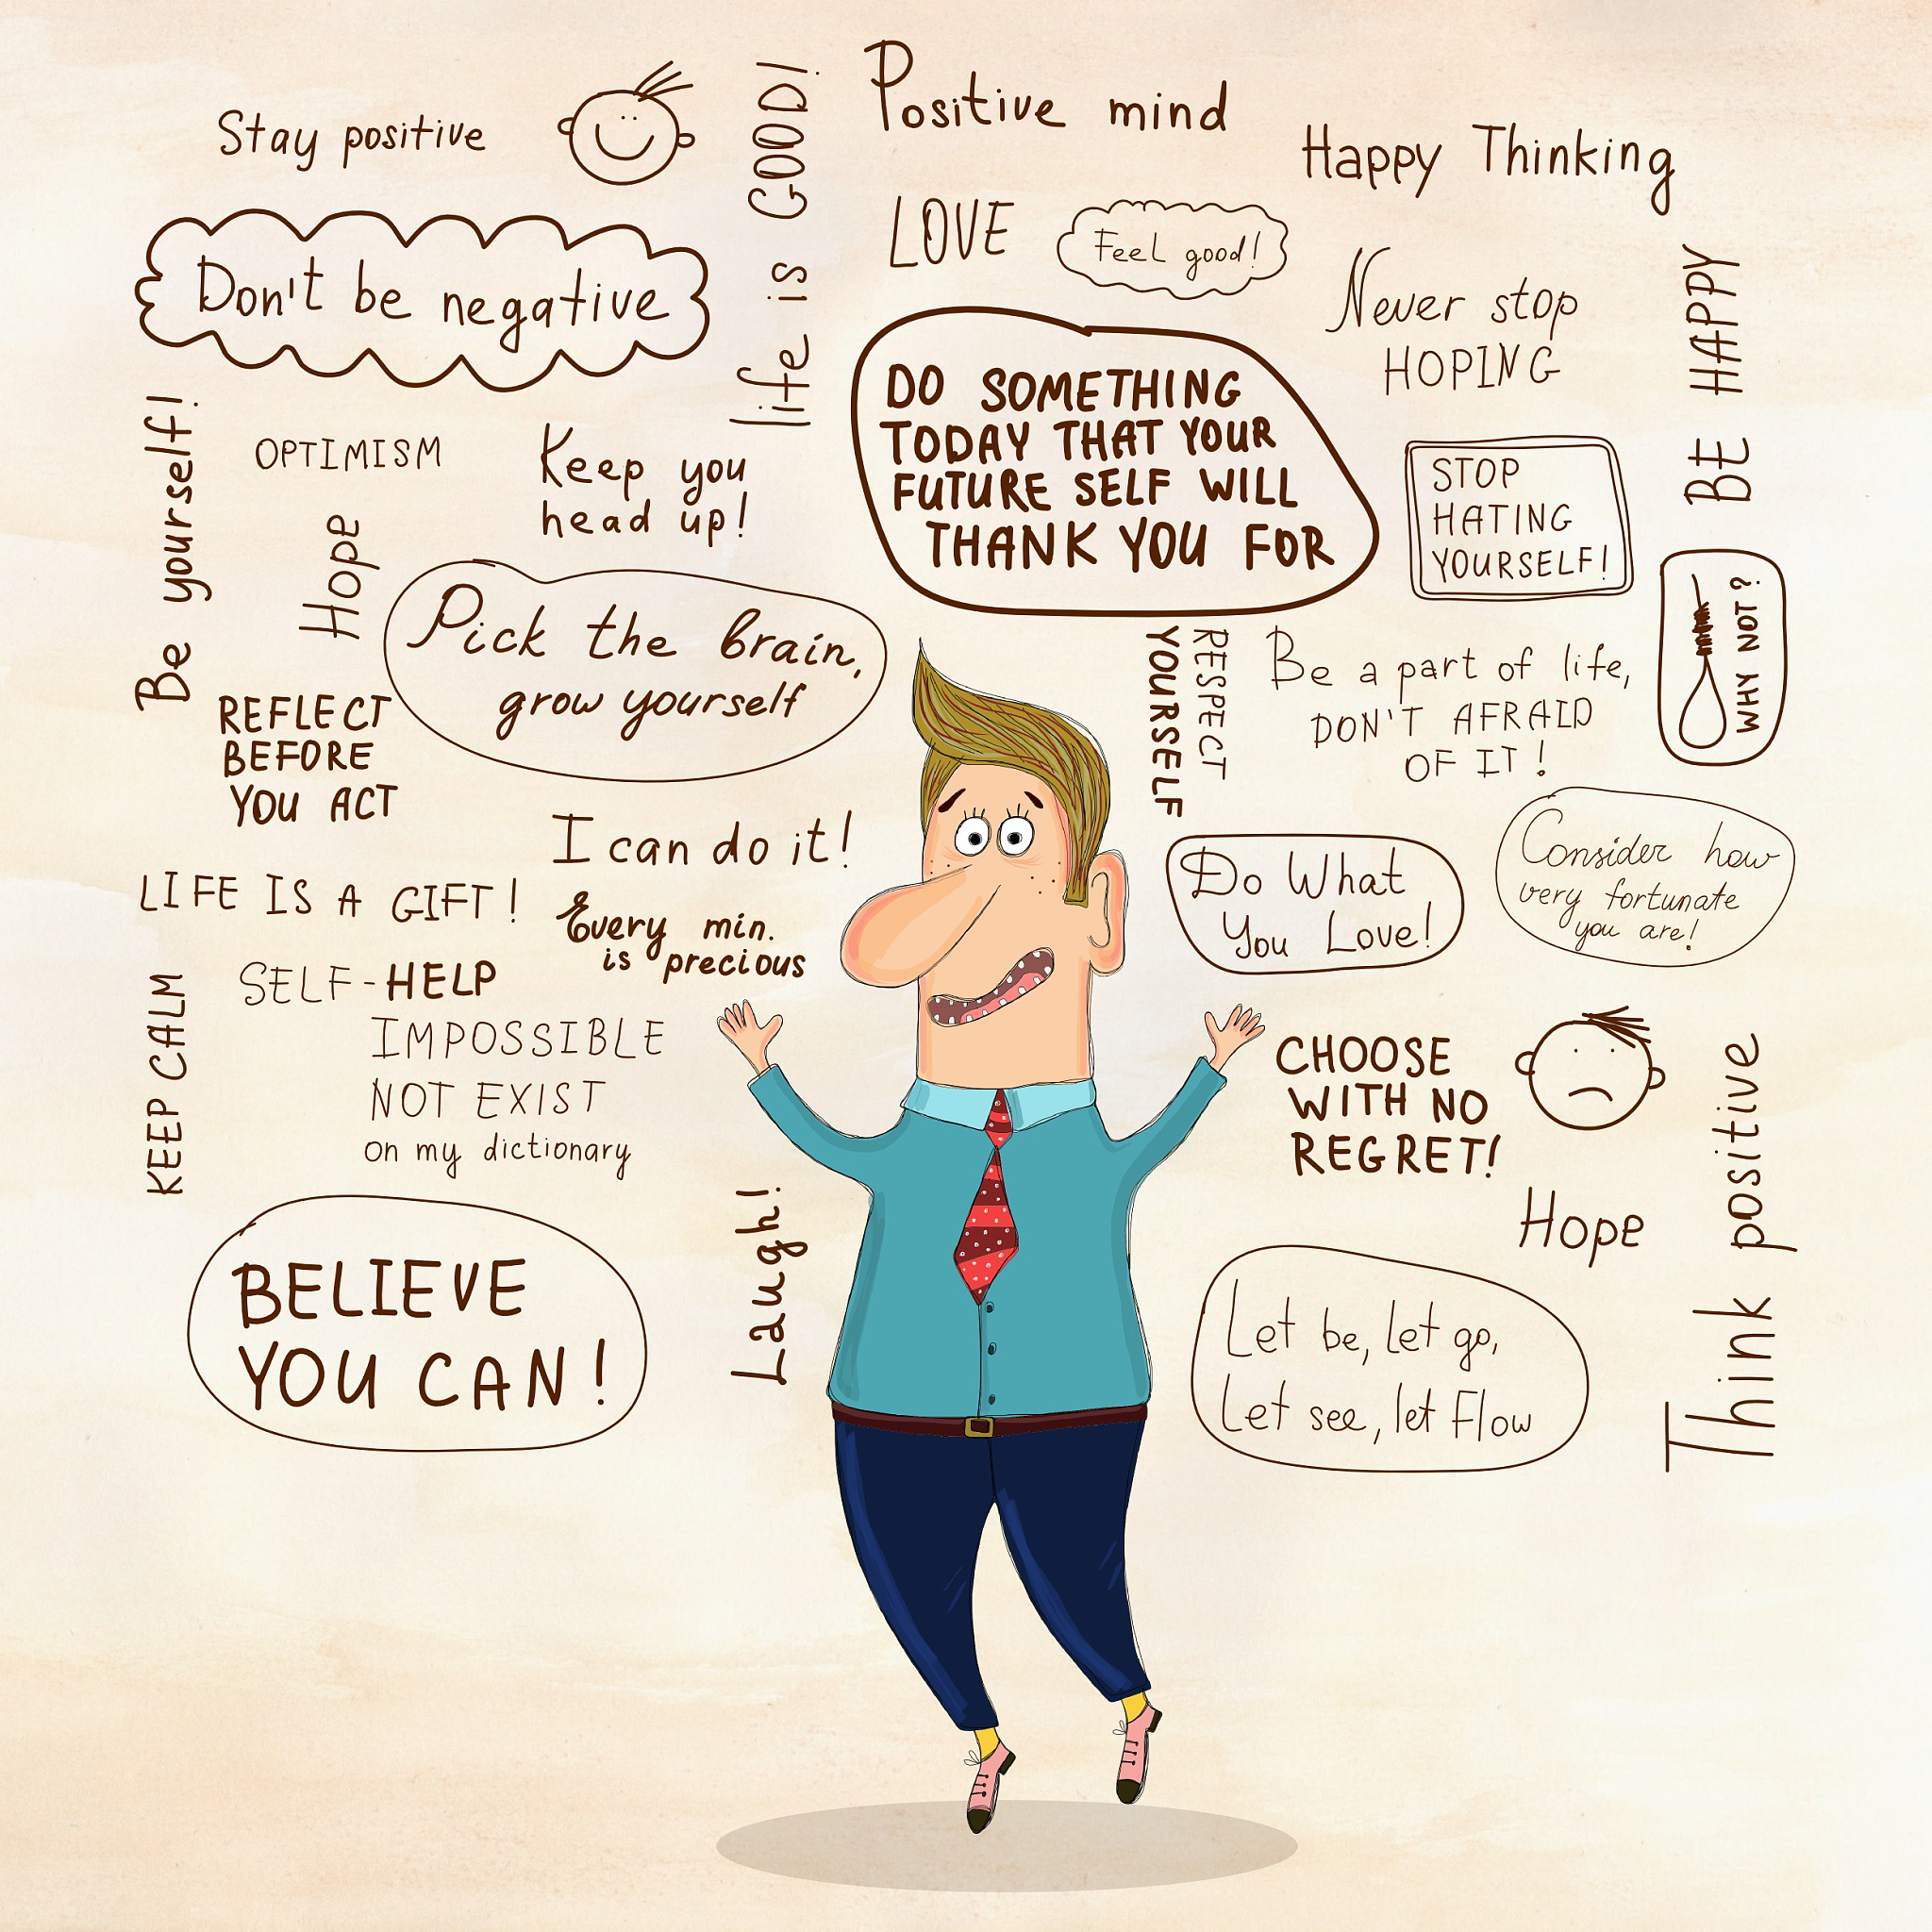 Stay positive
life is GOOD!
Positive mind
Happy Thinking
LOVE
Feel good!
Don't be negative
Never stop
HOPING
BE HAPPY
DO SOMETHING
TODAY THAT YOUR
FUTURE SELF WILL
THANK YOU FOR
Be yourself!
OPTIMISM
Keep you
head up!
STOP
HATING
YOURSELF!
Hope
WHY NOT?
Pick the brain,
grow yourself
RESPECT
YOURSELF
Be a part of life,
DON'T AFRAID
OF IT!
REFLECT
BEFORE
YOU ACT
I can do it!
Do What
You Love!
Consider how
very fortunate
you are!
LIFE IS A GIFT!
Every min.
is precious
SELF-HELP
KEEP CALM
IMPOSSIBLE
NOT EXIST
on my dictionary
CHOOSE
WITH NO
REGRET!
Think positive
Hope
Laugh!
BELIEVE
YOU CAN!
Let be, let go,
Let see, let Flow